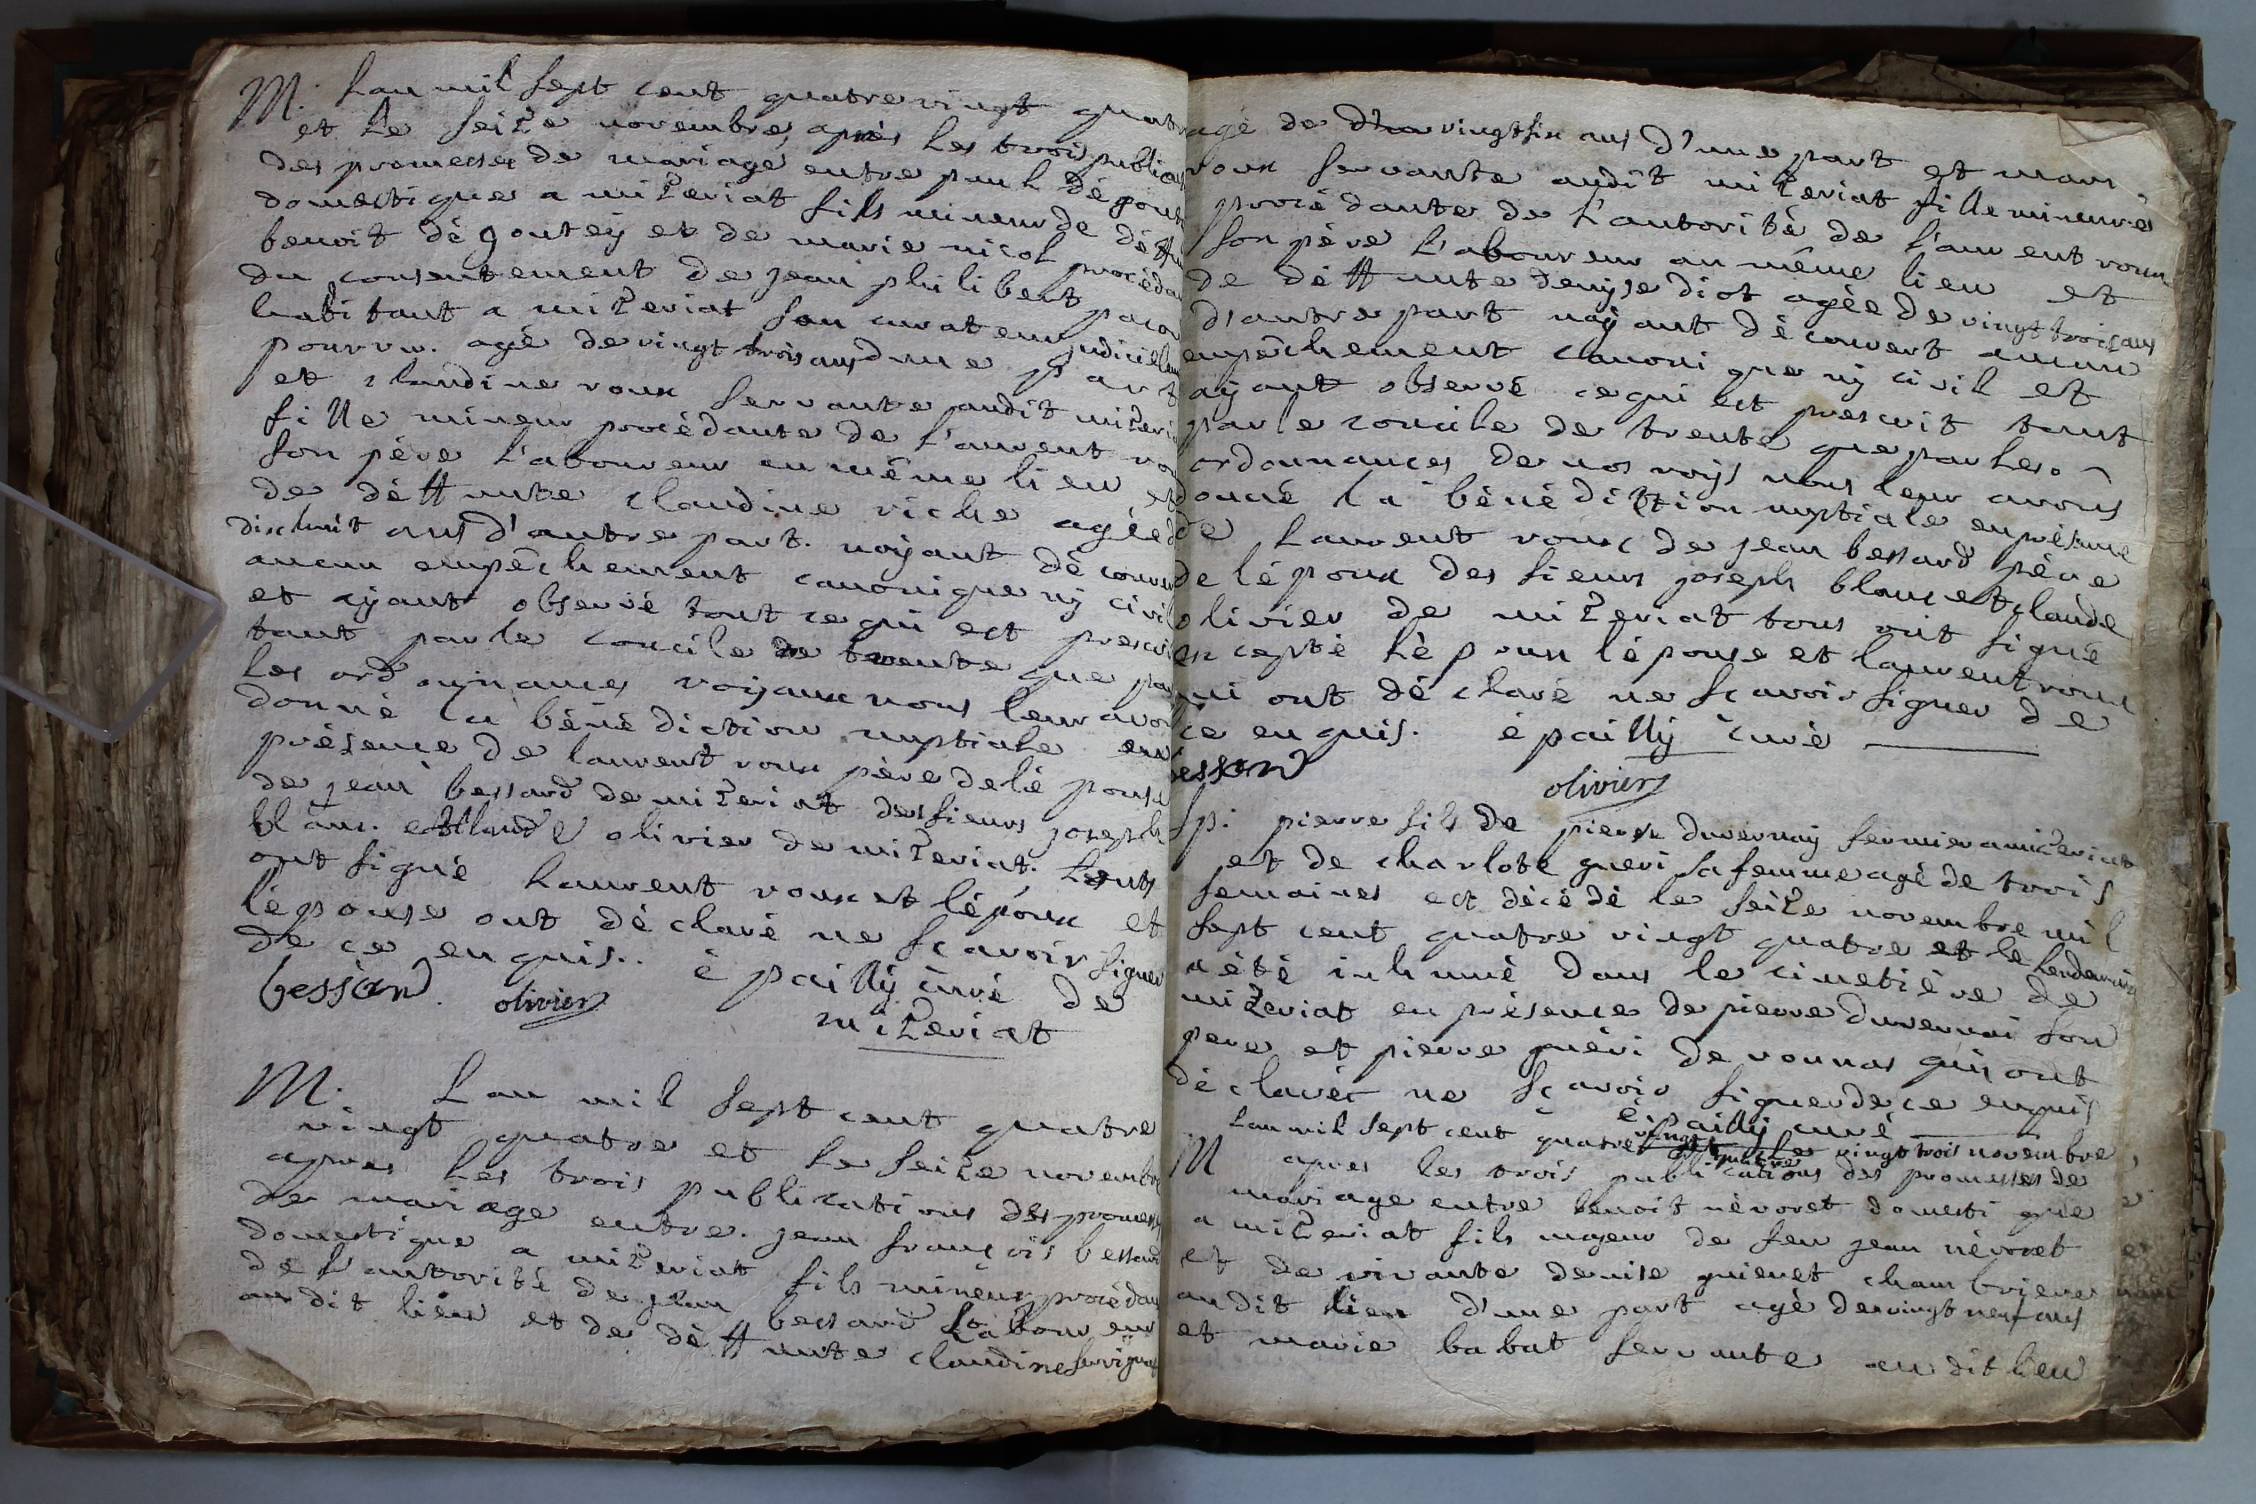 M. Lan mil sept cent quatre vingt quatr
et le seize novembre, après les trois publicat
des promesses de mariages entre paul dégout
domestique a mizeriat fils mineur de déffu
benoit dégoutey et de marie nicol procédan
du consentement de jean philibert pacou
habitant a mizeriat son curateur judiciellem
pourvu. agé de vingt trois ans d'une part
et claudine roux servante audit mizeria
fille mineur procédante de l'aurent rou
son père l'aboureur au même lieu et
de déffunte claudine riche agée d
dixhuit ans d'autre part. n'ayant découver
aucun empêchement canonique ny civil
et ayant observé tout ce qui est prescri
tant par le concile de trente que par
les ordonnances royaux nous leur avon
donné la bénédiction nuptiale en
présence de laurent roux père de lépouse
de jean bessard de mizeriat des sieurs joseph
blanc et claude olivier de mizeriat. touts
ont signé laurent roux et lépoux et
lépouse ont déclaré ne sçavoir signer
de ce enquis.. épailly curé de
bessard. olivier mizeriat
M. Lan mil sept cent quatre
vingt quatre et le seize novembre
apres les trois publications des promess
de mariage entre. jean françois bessard
domestique a mizeriat fils mineur procédan
de l'autorité de jean bessard laboureur
au dit lieu et de déffunte claudine
agé de vingtsix ans d'une part et mari
roux servante audit mizeriat fille mineure
procédante de l'autorité de l'aurent roux
son père l'aboureur au même lieu et
de déffunte denyse diot agée de vingt trois ans
d'autre part n'ayant découvert aucun
empêchement canonique ny civil et
ayant observé ce qui est prescrit tant
par le concile de trente que par les
ordonnances de nos roys nous leur avons
donné la bénédiction nuptiale en présence
de laurent roux de jean bessard père
de lépoux des sieurs joseph blanc et claude
olivier de mizeriat tous ont signé
excepté lépoux lépouse et laurent roux
qui ont déclaré ne sçavoir signer de
ce enquis. épailly curé
bessard olivier
Sp: pierre fils de pierre duvernay fermier a mizeriat
et de charlote gueri sa femme agé de trois
semaines est décédé le seize novembre mil
sept cent quatre vingt quatre et le lendemain
a été inhumé dans le cimetière de
mizeriat en présence de pierre duvernai son
pere et pierre guéri de vonnas qui ont
déclarés ne sçavoir signer de ce enquis
épailly curé
Lan mil sept cent quatre vingt quatre le vingt trois novembre
M apres les trois publications des promesses de
mariage entre benoit névoret domestique
a mizeriat fils majeur de feu jean névoret
et de vivante denise guienet chambriere
audit lieu d'une part agé de vingt neuf ans
et marie babat servante au dit lieu